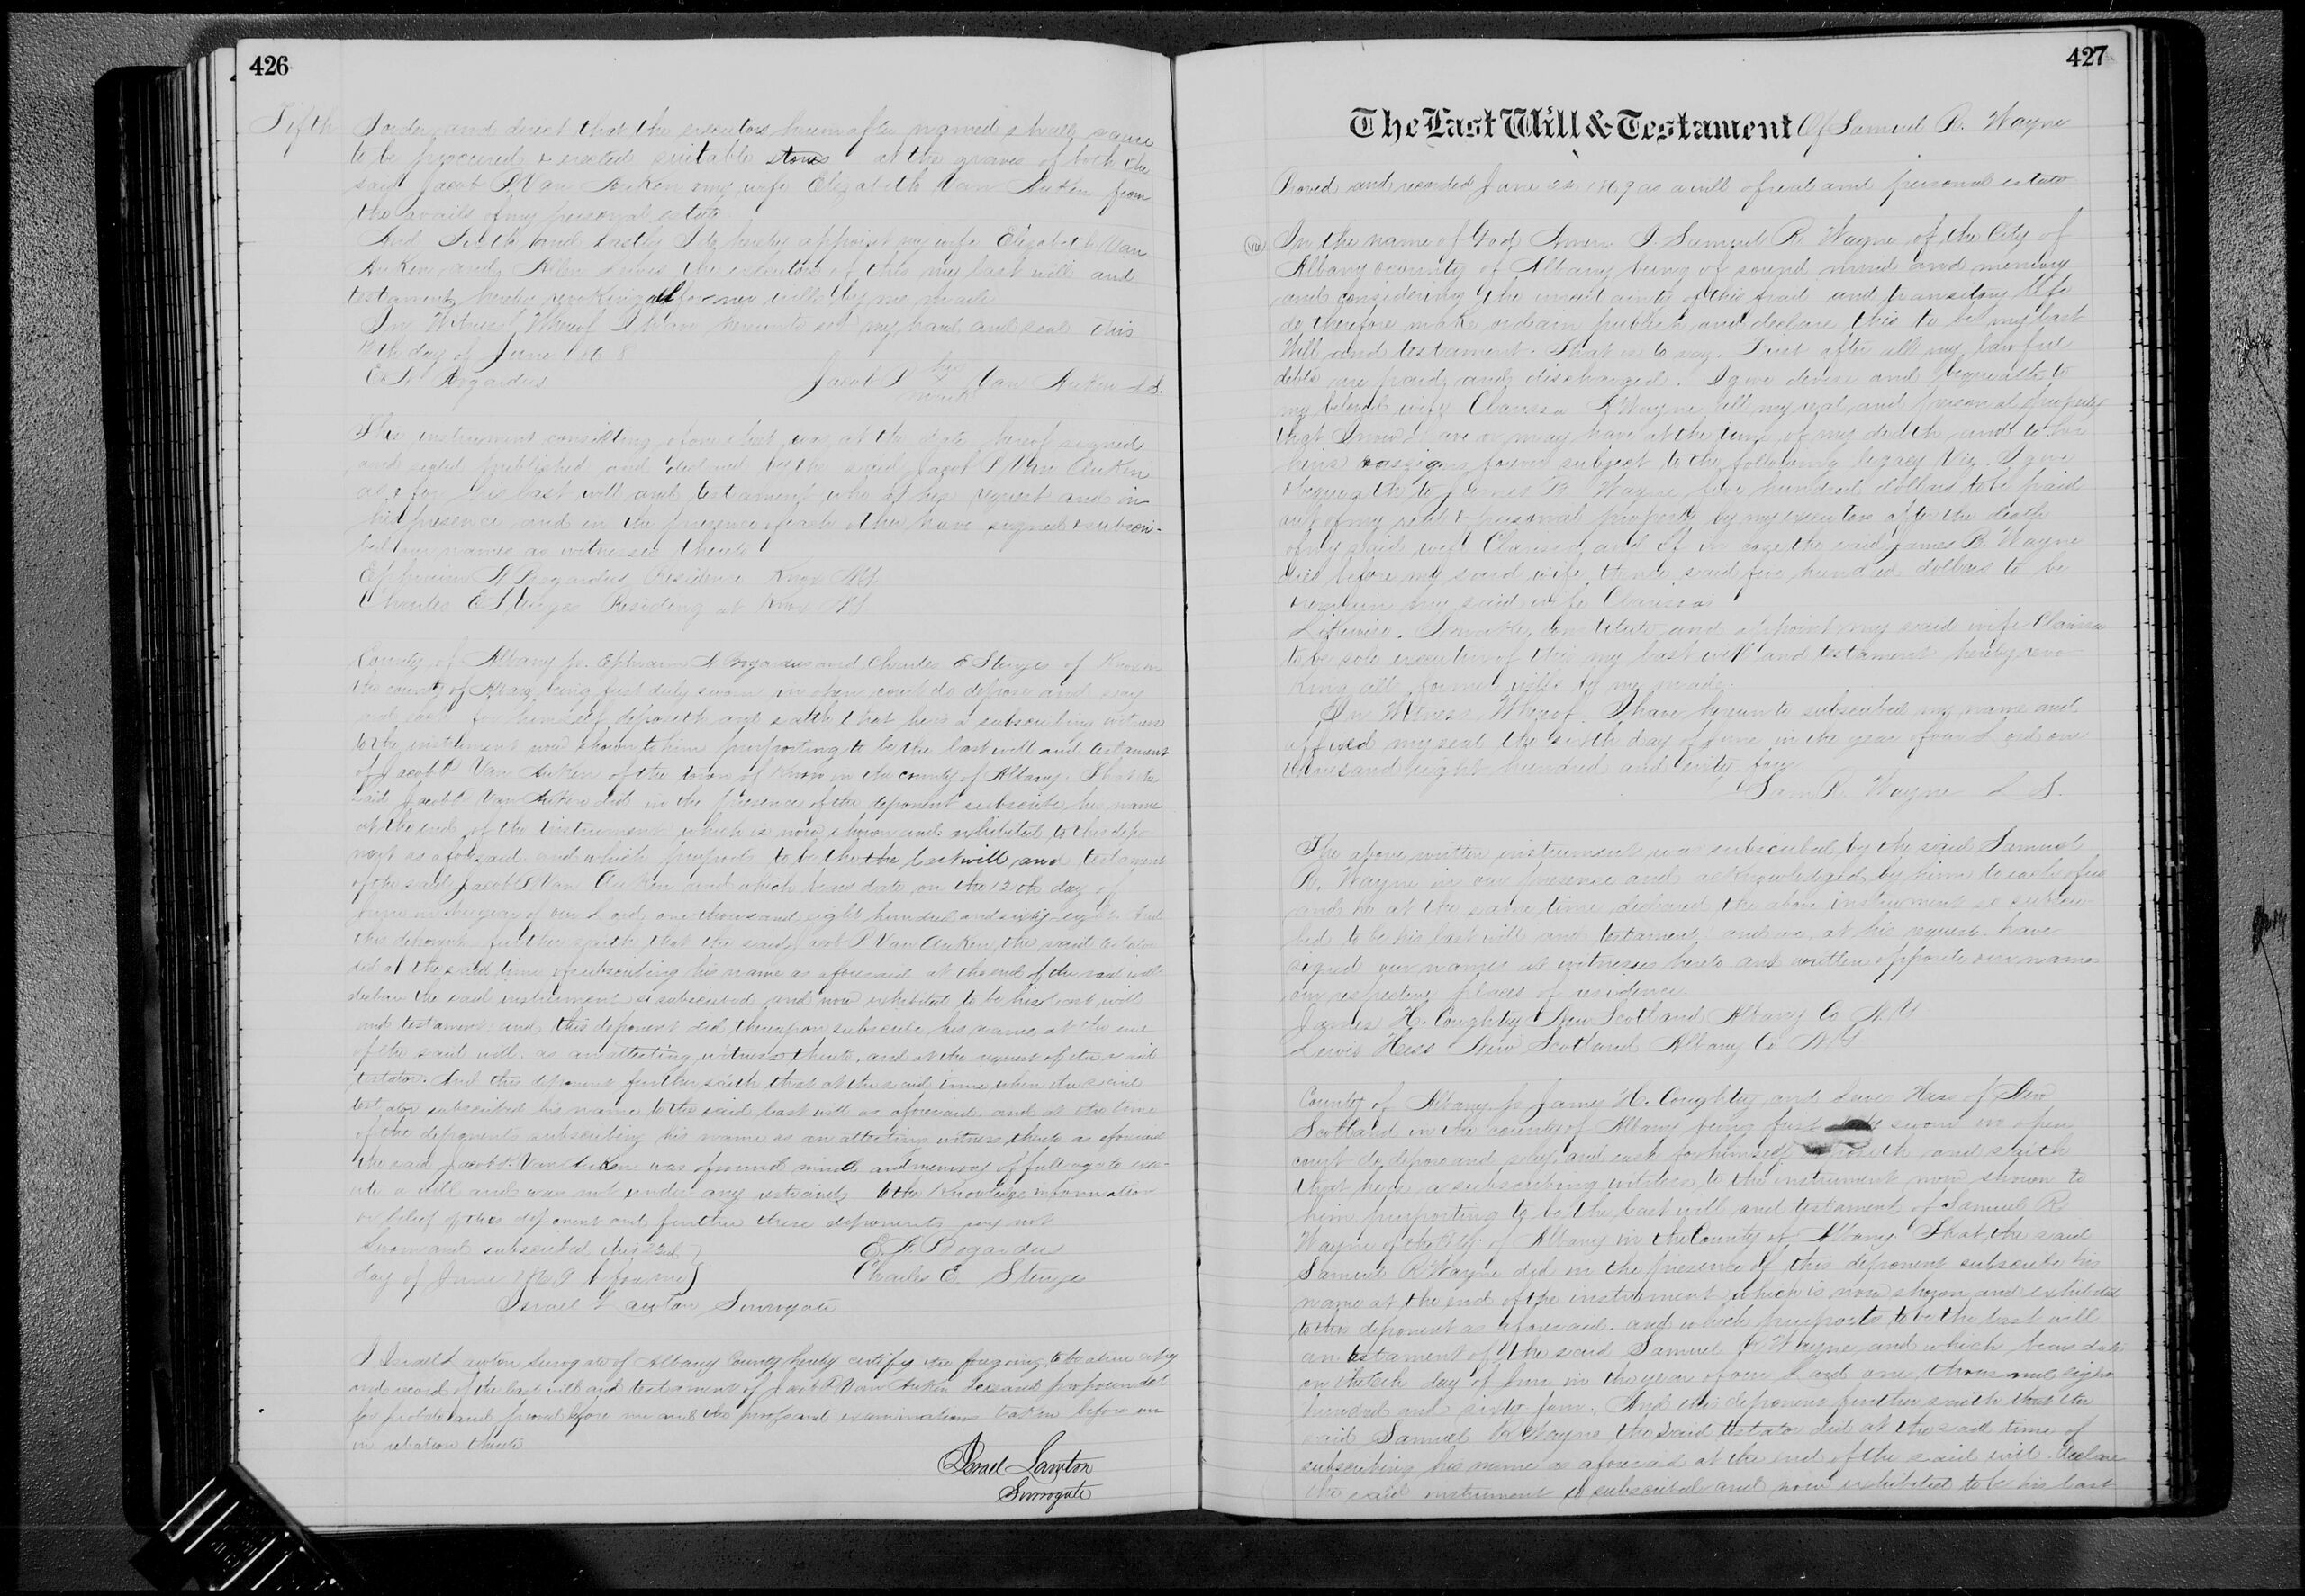 426
Fifth I order and direct that the executors hereinafter named shall cause
to be procured & erected suitable stones at the graves of both the
said Jacob P. Van Auken & my wife Elizabeth Van Auken from
the avails of my personal estate
And Sixth and lastly I do hereby appoint my wife Elizabeth Van
Auken and Allen the executors of this my last will and
testament hereby revoking all former wills by me made
In Witness Whereof I have hereunto set my hand and seal this
12th day of June 1868
E. A Bogardus Jacob P his x mark Van Auken L.S.
This instrument consisting of one sheet was at the date hereof signed
and sealed published and declared by the said Jacob P Van Auken
as & for his last will and testament who at his request and in
his presence and in the presence of each other have signed & subscri-
bed our names as witnesses thereto
Ephraim A Bogardus Residence Knox NY
Charles E Sturges Residing at Knox NY
County of Albany ss. Ephraim A Bogardus and Charles E Sturges of Knox in
the county of Albany being first duly sworn in open court do depose and say
and each for himself deposeth and saith that he is a subscribing witness
to the instrument now shown to him purporting to be the last will and testament
of Jacob P Van Auken of the town of Knox in the county of Albany. That the
said Jacob P Van Auken did in the presence of the deponent subscribe his name
at the end of the instrument which is now shown and exhibited to this depo-
nent as aforesaid and which purports to be the the last will and testament
of the said Jacob P Van Auken and which bears date on the 12th day of
June in the year of our Lord one thousand eight hundred and sixty-eight And
this deponent further saith that the said Jacob P Van Auken the said testator
did at the said time of subscribing his name as aforesaid at the end of the said will
declare the said instrument so subscribed and now exhibited to be his last will
and testament and this deponent did thereupon subscribe his name at the end
of the said will as an attesting witness thereto, and at the request of the said
testator. And this deponent further saith that at the said time when the said
testator subscribed his name to the said last will as aforesaid and at the time
of the deponents subscribing his name as an attesting witness thereto as aforesaid
the said Jacob P. Van Auken was of sound mind and memory of full age to exe-
cute a will and was not under any restraint to the knowledge information
or belief of this deponent and further these deponents say not
Sworn and subscribed this 22d E. A. Bogardus
day of June 1869 before me Charles E. Sturges
Israel Lawton Surrogate
I Israel Lawton Surrogate of Albany County hereby certify the foregoing to be a true copy
and record of the last will and testament of Jacob P Van Auken deceased propounded
for probate and proved before me and the proofs and examinations taken before me
in relation thereto
Israel Lawton
Surrogate
427
The Last Will & Testament Of Samuel R. Wayne
Proved and recorded June 22 1869 as a will of real and personal estate
In the name of God Amen I. Samuel R. Wayne of the City of
Albany & county of Albany being of sound mind and memory
and considering the uncertainty of this frail and transitory life
do therefore make ordain publish and declare this to be my last
Will and testament. That is to say. First after all my lawful
debts are paid and discharged. I give devise and bequeath to
my beloved wife Clarissa Wayne all my real and personal property
that I now have or may have at the time of my death and to her
heirs & assigns forever subject to the following legacy Viz. I give
& bequeath to James B. Wayne five hundred dollars to be paid
out of my real & personal property by my executors after the death
of my said wife Clarissa and if in case the said James B. Wayne
dies before my said wife then said five hundred dollars to be
& remain my said wife Clarissas
Likewise. I make, constitute and appoint my said wife Clarissa
to be sole executrix of this my last will and testament hereby revo-
king all former wills by me made.
In Witness Whereof. I have hereunto subscribed my name and
affixed my seal the sixth day of June in the year of our Lord one
thousand eight hundred and sixty four
Sam R. Wayne L S.
The above written instrument was subscribed by the said Samuel
R. Wayne in our presence and acknowledged by him to each of us
and he at the same time declared the above instrument so subscri-
bed to be his last will and testament and we at his request have
signed our names as witnesses hereto and written opposite our names
our respective places of residence
James H. Coughtry New Scotland Albany Co N.Y
Lewis Hess New Scotland Albany Co N.Y
County of Albany ss James H. Coughtry and Lewis Hess of New
Scotland in the county of Albany being first duly sworn in open
court do depose and say and each for himself deposeth and saith
that he is a subscribing witness to the instrument now shown to
him purporting to be the last will and testament of Samuel R.
Wayne of the City of Albany in the County of Albany. That the said
Samuel R Wayne did in the presence of this deponent subscribe his
name at the end of the instrument which is now shown and exhibited
to this deponent as aforesaid. and which purports to be the last will
an testament of the said Samuel R Wayne and which bears date
on the 6th day of June in the year of our Lord one thousand eight
hundred and sixty four. And this deponent further saith that the
said Samuel R Wayne the said testator did at the said time of
subscribing his name as aforesaid at the end of the said will declare
the said instrument so subscribed and now exhibited to be his last